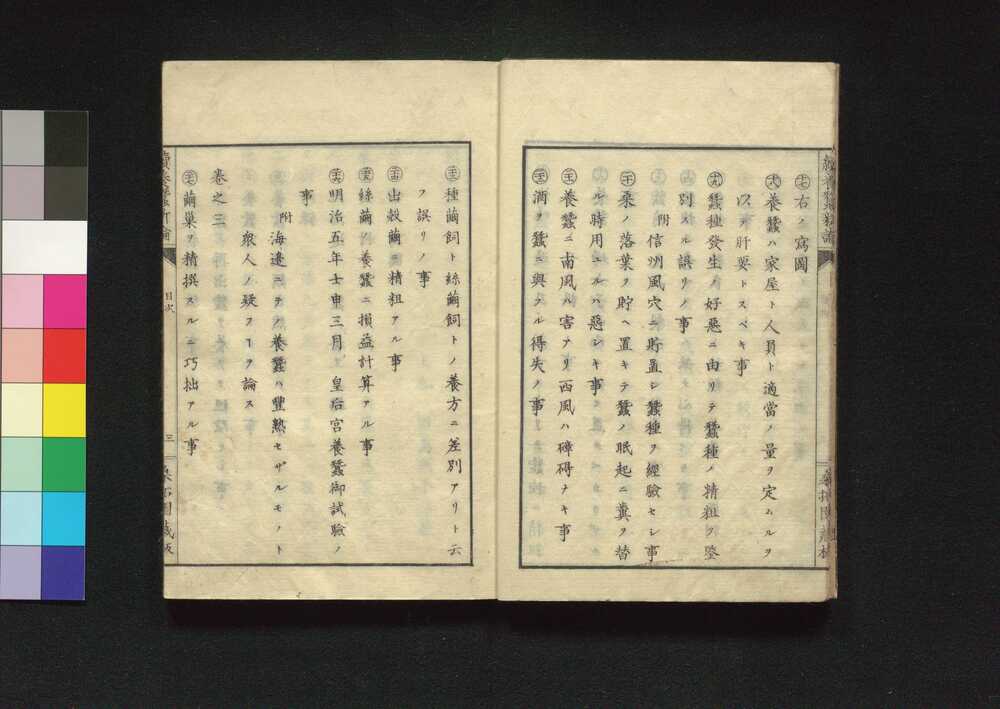 續養蠶新論
㊆右ノ寫圖
㊇養蠶ハ家屋ト人員ト適當ノ量ヲ定ムルヲ
以テ肝要トスベキ事
蠶種發生ノ好惡ニ由リテ蠶種ノ精粗ヲ鑒
別スル誤リノ事
附 信州風穴ニ貯置シ蠶種ヲ經驗セシ事
桑ノ落葉ヲ貯ヘ置キテ蠶ノ眠起ニ糞ヲ替
ル時用ユルハ惡シキ事
養蠶ニ南風ハ害アリ西風ハ障碍ナキ事
酒ヲ蠶ニ與フル得失ノ事
種繭飼ト絲繭飼トノ養方ニ差別アリト云
フ誤リノ事
出殼繭ニ精粗アル事
絲繭ノ養蠶ニ損益計算アル事
明治五年壬申三月ヨリ皇后宮養蠶御試驗ノ
事
附 海邊ニテハ養蠶ハ豐熟セザルモノト
衆人ノ疑フヿヲ論ス
卷之三
繭巣ヲ精撰スルニ巧拙アル事
續養蠶新論
目次
三